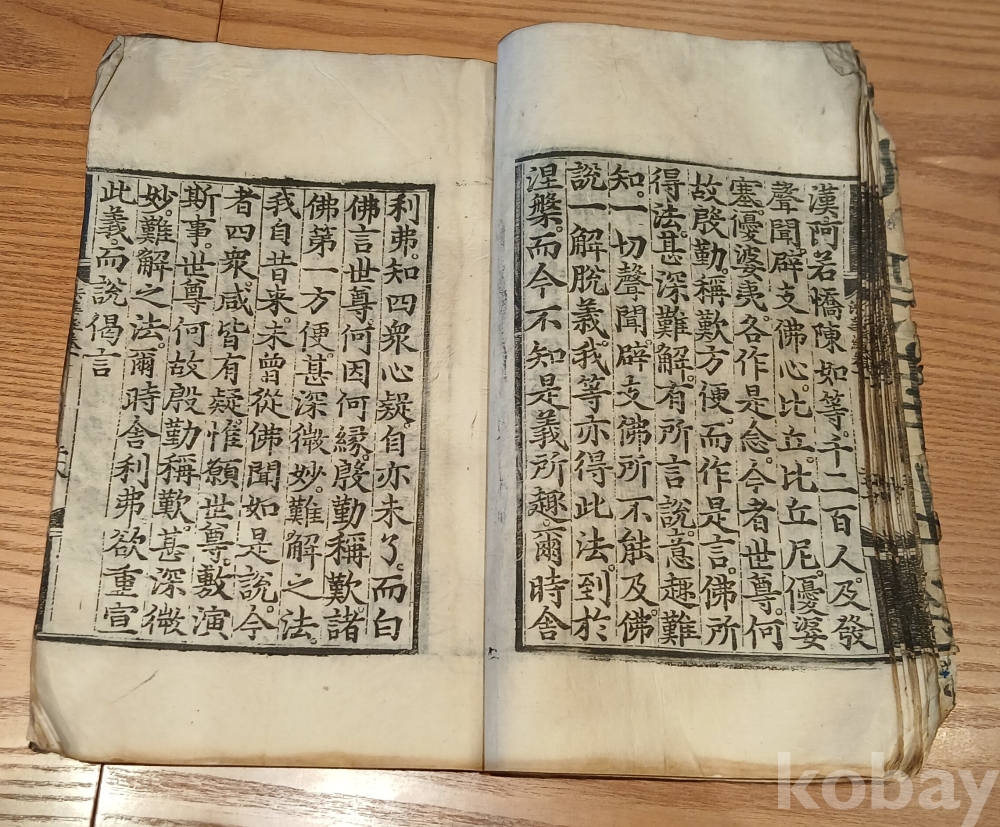 漢。阿若憍陳如等。千二百人。及發
聲聞。辟支佛心。比丘。比丘尼。優婆
塞。優婆夷。各作是念。今者世尊。何
故殷勤。稱歎方便。而作是言。佛所
得法。甚深難解。有所言說。意趣難
知。一切聲聞。辟支佛所不能及。佛
說一解脫義。我等亦得此法。到於
涅槃。而今不知是義所趣。爾時舍
利弗。知四衆心疑。自亦未了。而白
佛言世尊何因何緣。慇勤稱歎。諸
佛第一方便。甚深微妙。難解之法。
我自昔来。未曾從佛聞如是說。今
者四衆。咸皆有疑惟願世尊。敷演
斯事。世尊何故殷勤稱歎。甚深微
妙。難解之法。爾時舍利弗欲重宣
此義。而說偈言
kobay